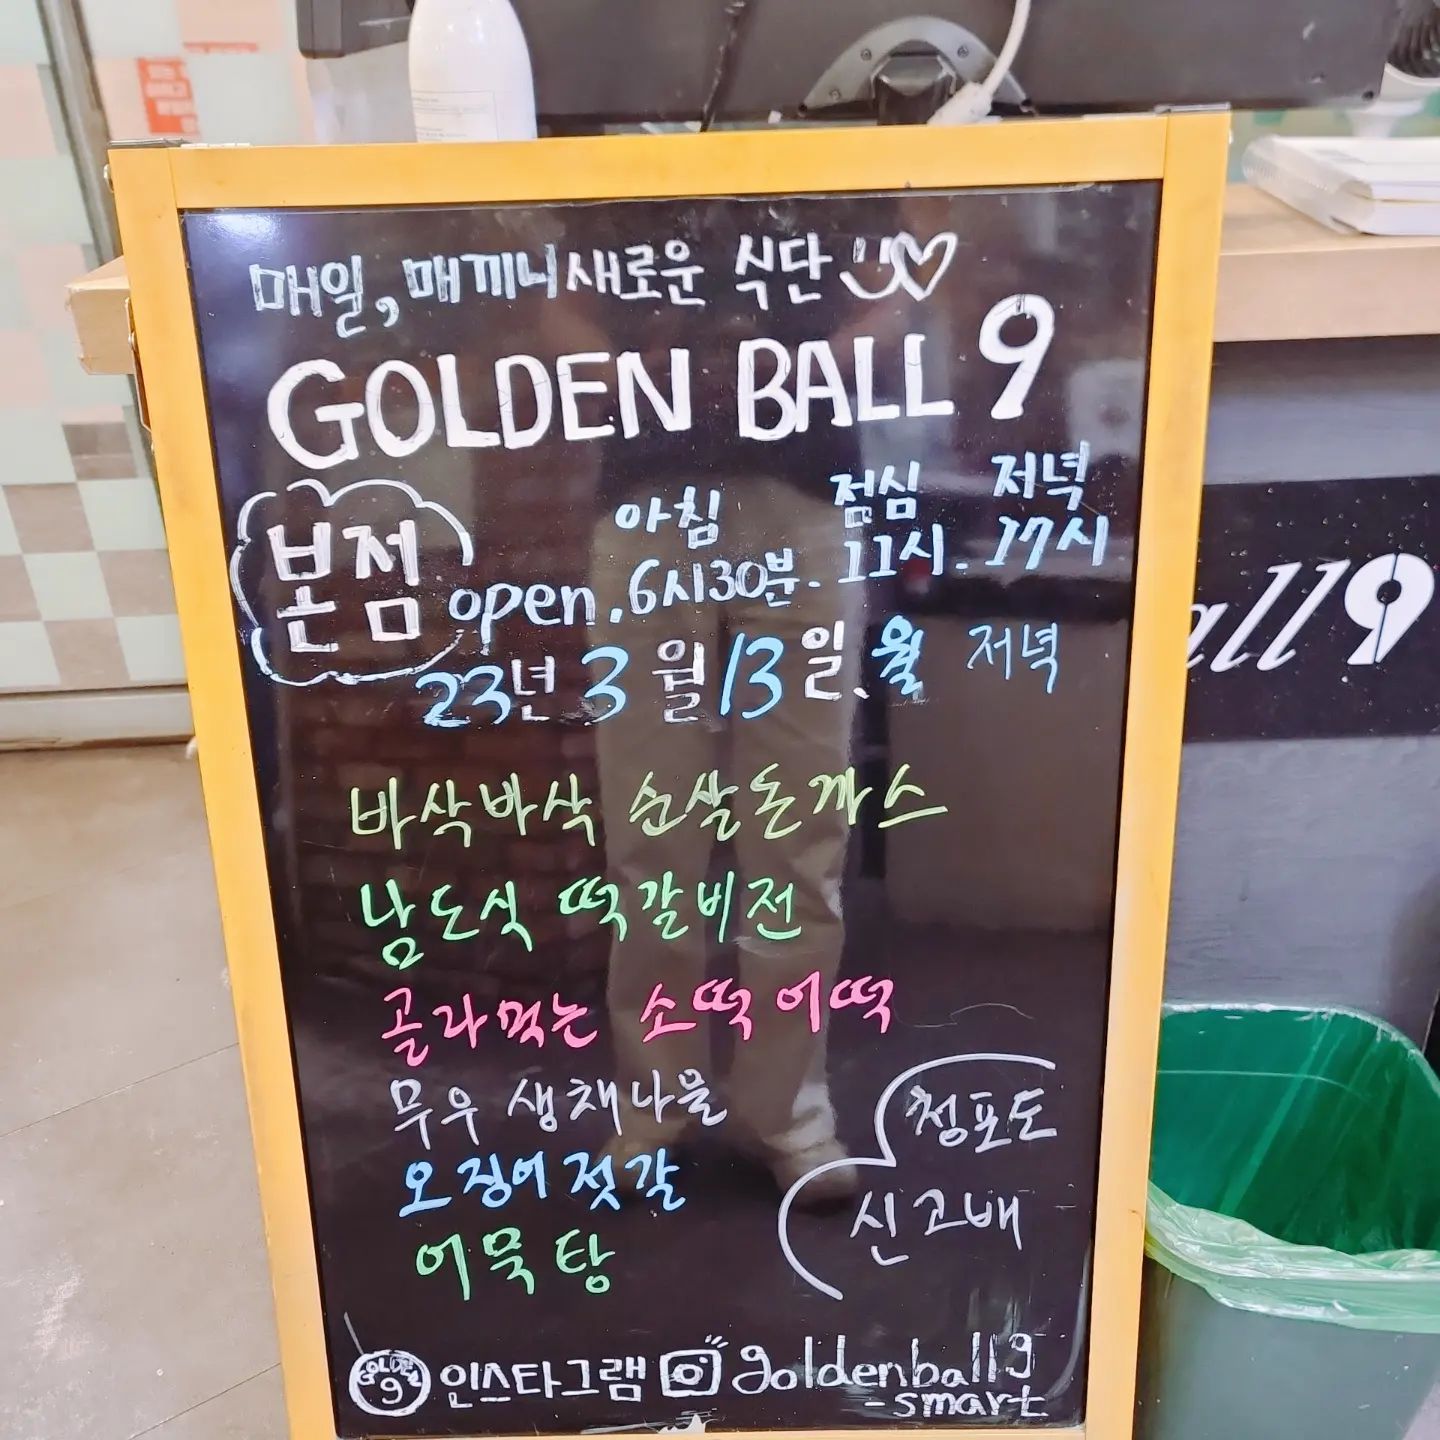 매일, 매끼니 새로운 식단
GOLDEN BALL 9
본점
아침 점심 저녁
open. 6시30분. 11시. 17시
23년 3월 13일. 월 저녁
바삭바삭 순살돈까스
남도식 떡갈비전
골라먹는 소떡 어떡
무우 생채나물
오징어 젓갈
어묵탕
청포도
신고배
GOLDEN BALL 9 인스타그램 goldenball9
-smart
all9